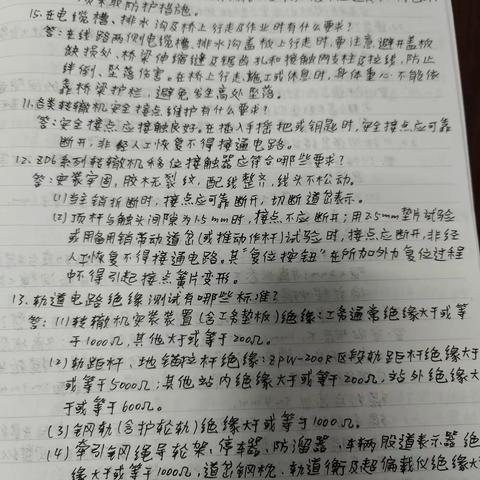 采取防护措施。
15.在电缆槽、排水沟及桥上行走及作业时有什么要求?
答:在线路两侧电缆槽、排水沟盖板上行走时,要注意避开盖板
缺损处、桥梁伸缩缝及锯齿孔和接触网支柱及拉线,防止
绊倒、坠落伤害。在桥上行走、施工或休息时,身体重心不能依
靠桥梁护栏,避免发生高处坠落。
11.各类转辙机安全接点维护有什么要求?
答:安全接点应接触良好。在插入手摇把或钥匙时,安全接点应可靠
断开,非经人工恢复不得接通电路。
12.ZD6系列转辙机移位接触器应符合哪些要求?
答:安装牢固,胶木无裂纹,配线整齐,线头不松动。
(1)当主销折断时,接点应可靠断开,切断道岔表示。
(2)顶杆与触头间隙为1.5mm时,接点不应断开;用2.5mm垫片试验
或用备用销带动道岔(或推动作杆)试验时,接点应断开,非经
人工恢复不得接通电路。其"复位按钮"在所加外力复位过程
中不得引起接点簧片变形。
13.轨道电路绝缘测试有哪些标准?
答:(1)转辙机安装装置(含工务垫板)绝缘:工务通常绝缘大于或等
于1000Ω,其他大于或等于200Ω。
(2)轨距杆、地锚拉杆绝缘:ZPW-200R区段轨距杆绝缘大于
或等于5000Ω;其他站内绝缘大于或等于200Ω,站外绝缘大
于或等于600Ω。
(3)钢轨(含护轮轨)绝缘大于或等于1000Ω。
(4)牵引钢绳导轮架、停车器、防溜器、车辆股道表示器绝
缘大于或等于1000Ω,道岔钢枕、轨道衡及超偏载仪绝缘大